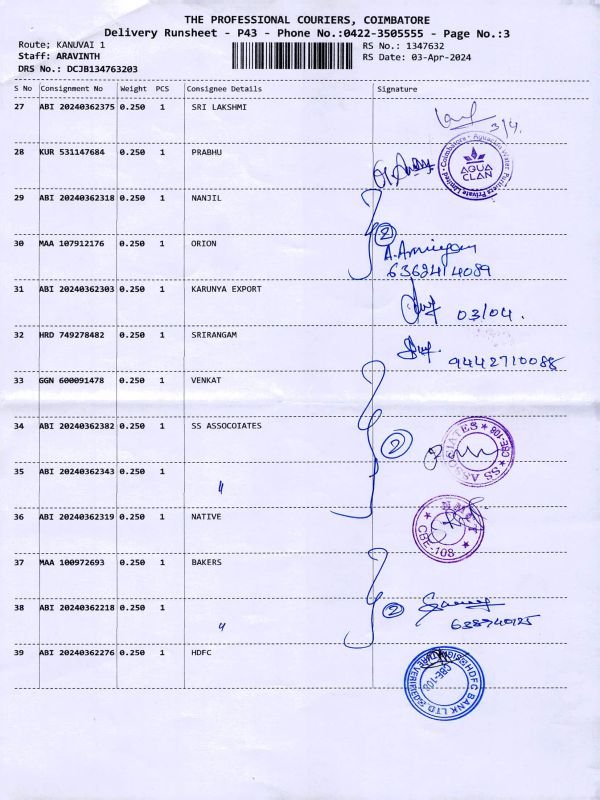 THE PROFESSIONAL COURIERS, COIMBATORE
Delivery Runsheet - P43 - Phone No.:0422-3505555 - Page No.:3
Route; KANUVAI 1 RS No.: 1347632
Staff: ARAVINTH RS Date: 03-Apr-2024
DRS No.: DCJB134763203
S No Consignment No Weight PCS Consignee Details Signature
27 ABI 20240362375 0.250 1 SRI LAKSHMI
3/4.
28 KUR 531147684 0.250 1 PRABHU
Coimbatore Aquaclan Water Purifiers Private Limited
AQUA
CLAN
29 ABI 20240362318 0.250 1 NANJIL
2
30 MAA 107912176 0.250 1 ORION
31 ABI 20240362303 0.250 1 KARUNYA EXPORT
03/04.
32 HRD 749278482 0.250 1 SRIRANGAM
9442710088
33 GGN 600091478 0.250 1 VENKAT
34 ABI 20240362382 0.250 1 SS ASSOCOIATES
2
SS ASSOCIATES CBE-108
35 ABI 20240362343 0.250 1 "
36 ABI 20240362319 0.250 1 NATIVE
CBE-108
37 MAA 100972693 0.250 1 BAKERS
38 ABI 20240362218 0.250 1 "
2
39 ABI 20240362276 0.250 1 HDFC
HDFC BANK LTD
CBE-108